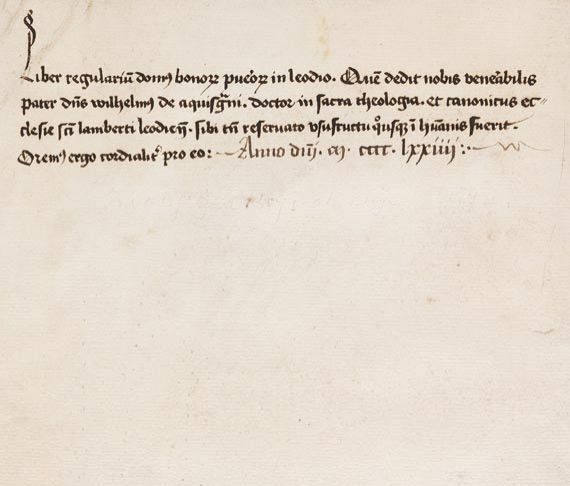 Liber regulariū domꝰ bonoꝝ pueꝛoꝝ in leodio. Quē dedit nobis veneᷓbilis
pater dn̄s wilhelmꝰ de aquisgᷓni. doctor in sacra theologia. et canonicus ec-
clesie sc̄i lamberti leodien̄. sibi tn̄ reseruato vsufructu qͦusqꝫ ī hūanis fuerit.
Oremꝰ ergo cordialit᷑ pro eo: Anno dn̄i. m. cccc. lxxiiii :.